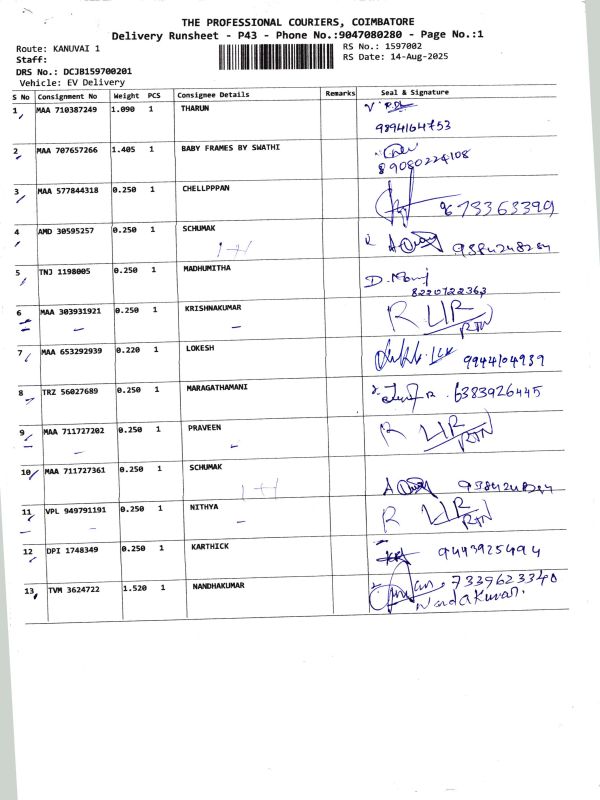 THE PROFESSIONAL COURIERS, COIMBATORE
Delivery Runsheet - P43 - Phone No.:9047080280 - Page No.:1
Route: KANUVAI 1
RS No.: 1597002
Staff:
RS Date: 14-Aug-2025
DRS No.: DCJB159700201
Vehicle: EV Delivery
S No Consignment No Weight PCS Consignee Details Remarks Seal & Signature
1 MAA 710387249 1.090 1 THARUN
9894164753
2 MAA 707657266 1.405 1 BABY FRAMES BY SWATHI
89080224108
3 MAA 577844318 0.250 1 CHELLPPPAN
9673363399
4 AMD 30595257 0.250 1 SCHUMAK
1+1 9384248284
5 TNJ 1198005 0.250 1 MADHUMITHA D.
8220722363
6 MAA 303931921 0.250 1 KRISHNAKUMAR R
RTN
7 MAA 653292939 0.220 1 LOKESH
9944104939
8 TRZ 56027689 0.250 1 MARAGATHAMANI 6383926445
9 MAA 711727202 0.250 1 PRAVEEN R
RTN
10 MAA 711727361 0.250 1 SCHUMAK
1+1 9384248284
11 VPL 949791191 0.250 1 NITHYA R
RTN
12 DPI 1748349 0.250 1 KARTHICK 9443925494
13 TVM 3624722 1.520 1 NANDHAKUMAR 7339623340
Nandakumar.